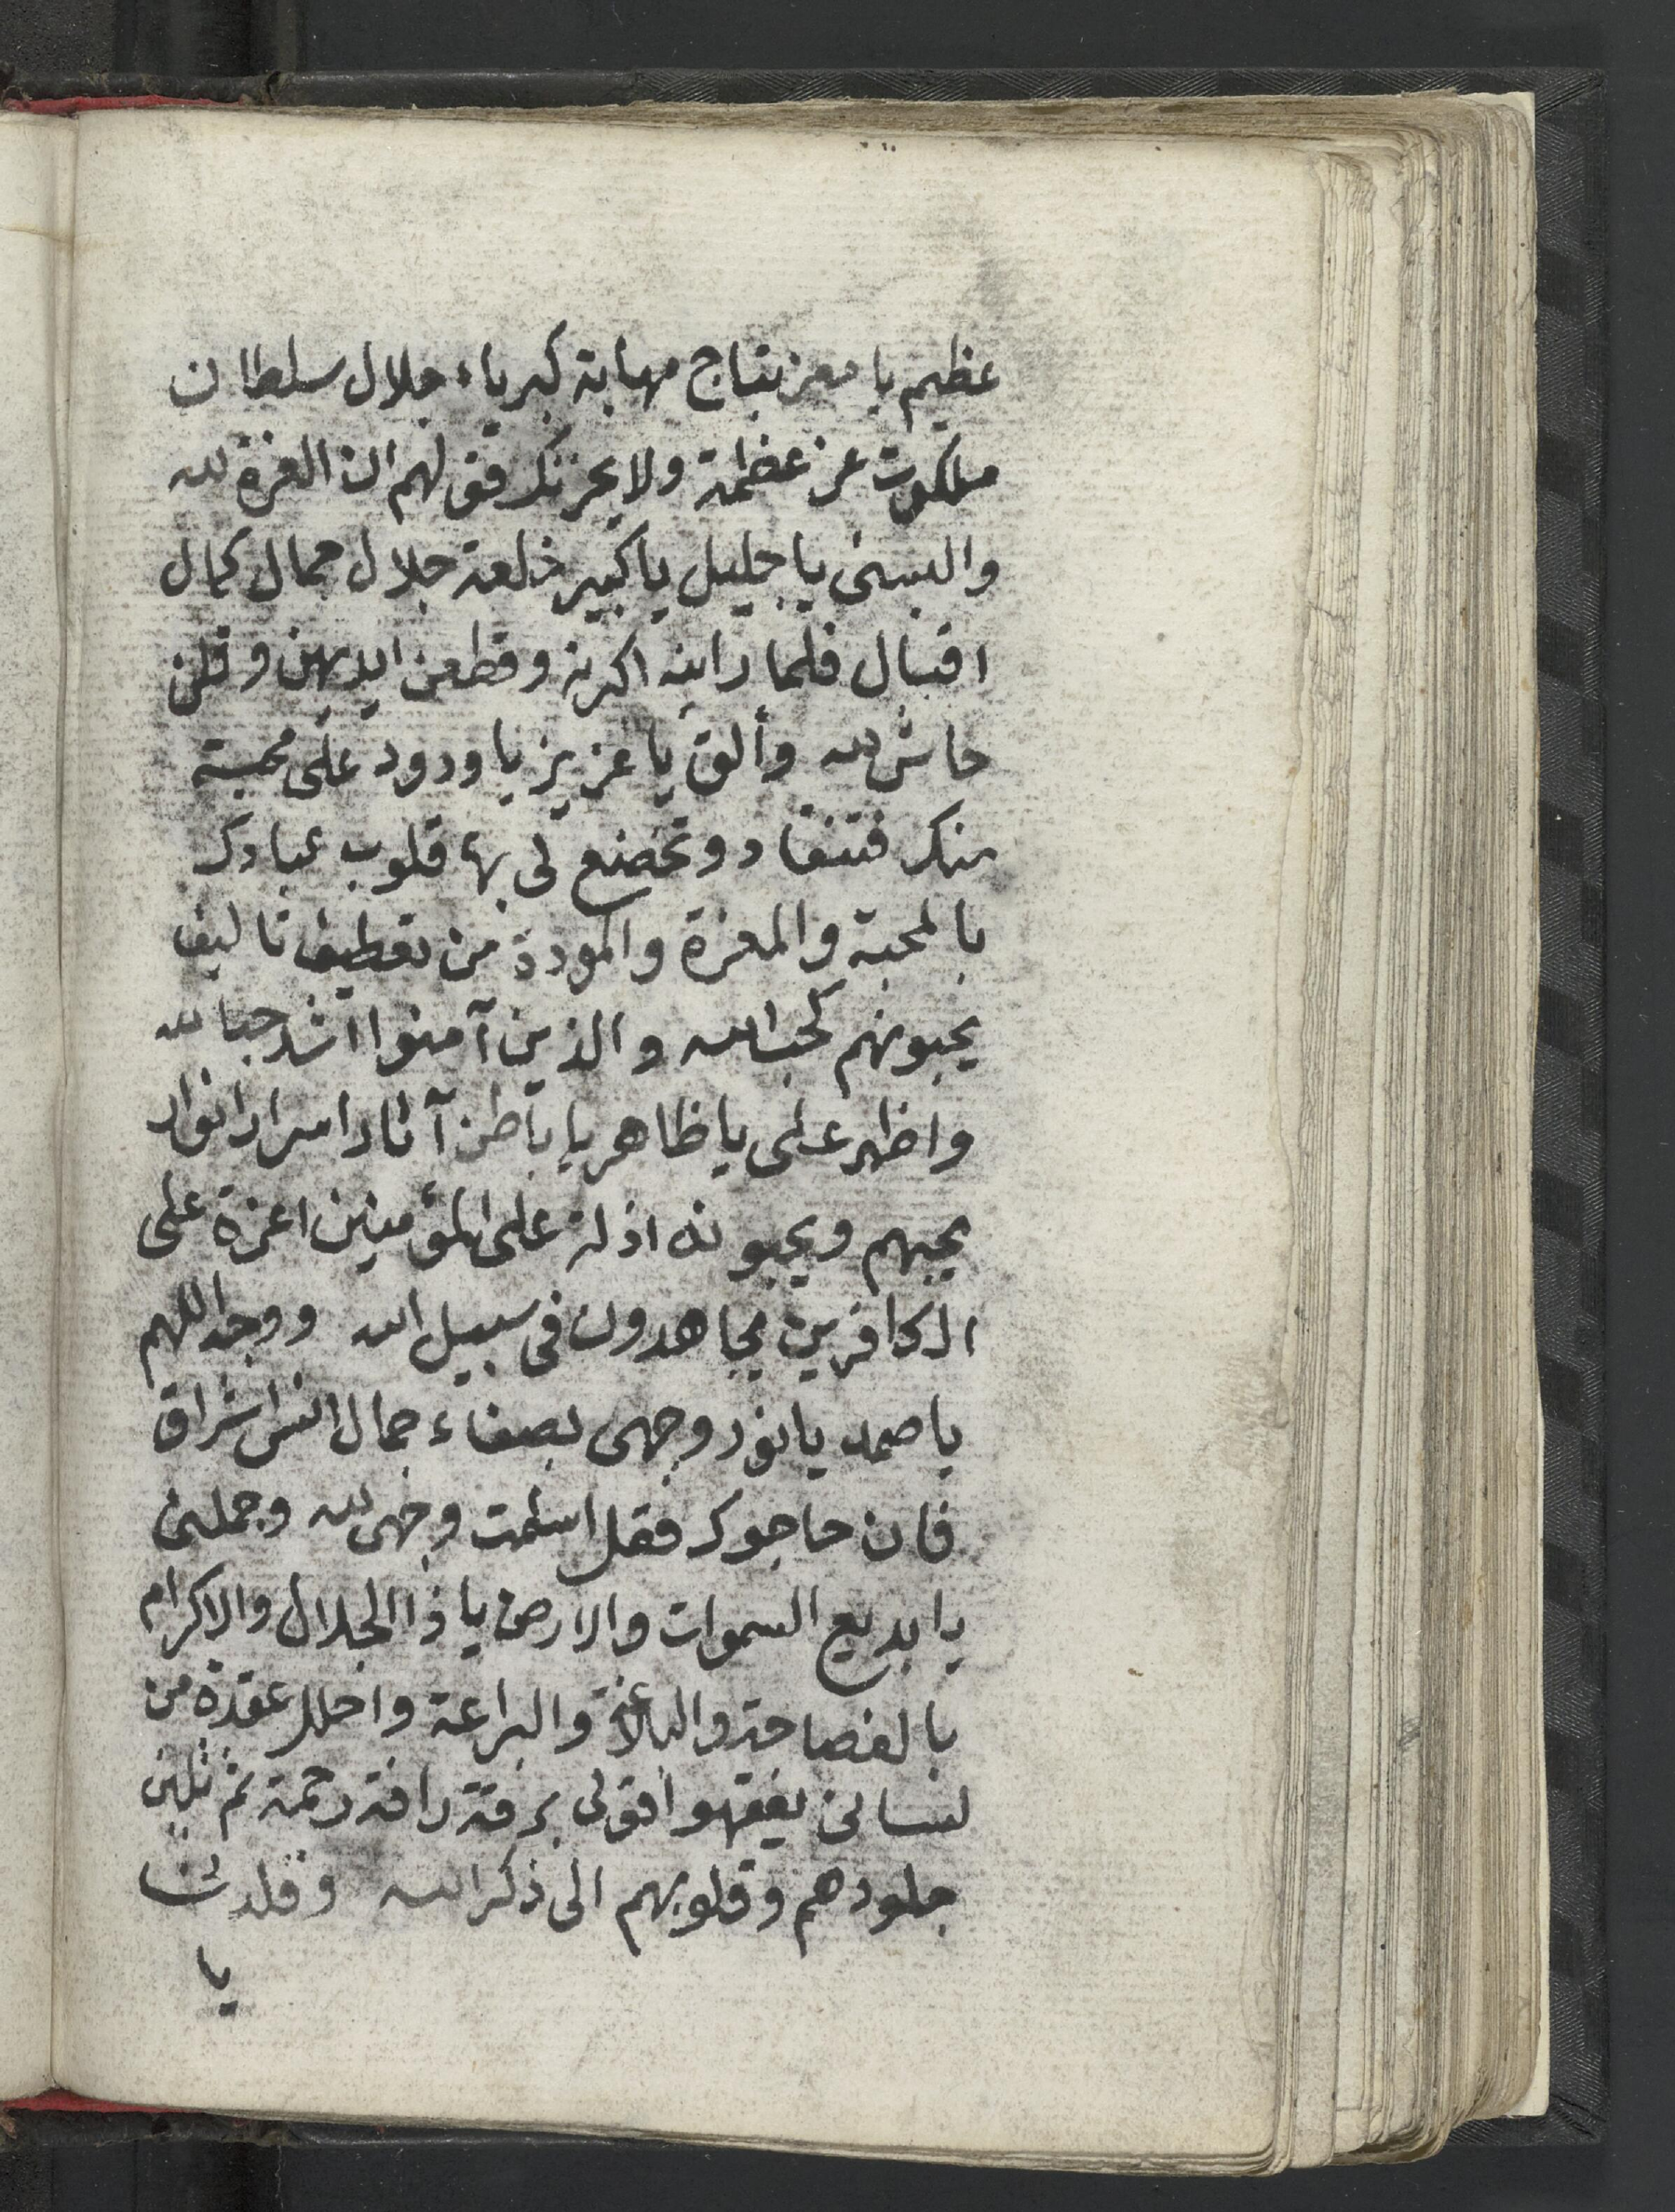 عظيم يا معز بتاج مهابة كبرياء جلال سلطان
ملكوت عز عظمة ولا يحزنك قولهم ان العزة لله
والبسنى يا جليل يا كبير خلعة جلال جمال كمال
اقبال فلما راينه اكبرنه وقطعن ايديهن وقلن
حاش لله وألق يا عزيز يا ودود على محبة
منك فتنقاد وتخضع لى بها قلوب عبادك
بالمحبة والمعزة والمودة من تعطيف تاليف
يحبونهم كحب الله والذين آمنوا اشد حبا لله
واظهر على يا ظاهر يا باطن آثار اسرار انوار
يحبهم ويحبونه اذلة على المؤمنين اعزة على
الكافرين يجاهدون فى سبيل الله ووجه اللهم
يا صمد يا نور وجهى بصفاء جمال انس اشراق
فان حاجوك فقل اسلمت وجهى لله وجملنى
يا بديع السموات والارض يا ذا الجلال والاكرام
بالفصاحة والبلاغة والبراعة واحلل عقدة من
لسانى يفقهوا قولى برقة رافة رحمة ثم تلين
جلودهم وقلوبهم الى ذكر الله وقلدنا
يا